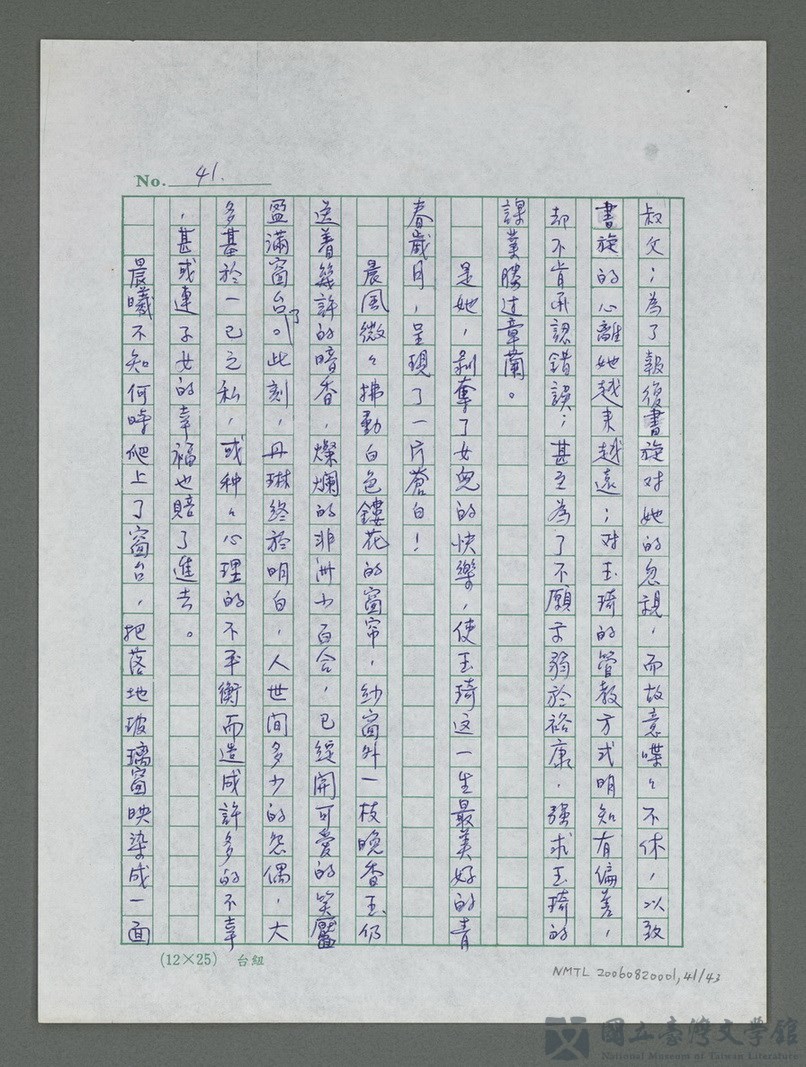 No. 41.
叔父；為了報復書旋对她的忽視，而故意喋々不休，以致
書旋的心離她越来越遠；对玉琦的管教方式明知有偏差，
却不肯承認錯誤；甚至為了不願示弱於裕康，强求玉琦的
課業勝过章蘭。
是她，剥奪了女兒的快樂，使玉琦这一生最美好的青
春歲月，呈現了一片蒼白！
晨風微々拂動白色鏤花的窗帘，紗窗外一枝晚香玉仍
送着幾許的暗香，燦爛的非洲小百合，已綻開可愛的笑靨
盈滿窗台了。此刻，丹琳終於明白，人世间多少的怨偶，大
多基於一己之私，或种々心理的不平衡而造成許多的不幸
，甚或連子女的幸福也賠了進去。
晨曦不知何時爬上了窗台，把落地玻璃窗映染成一面
(12×25) 台紐
NMTL 20060820001, 41/43
國立臺灣文學館
National Museum of Taiwan Literature